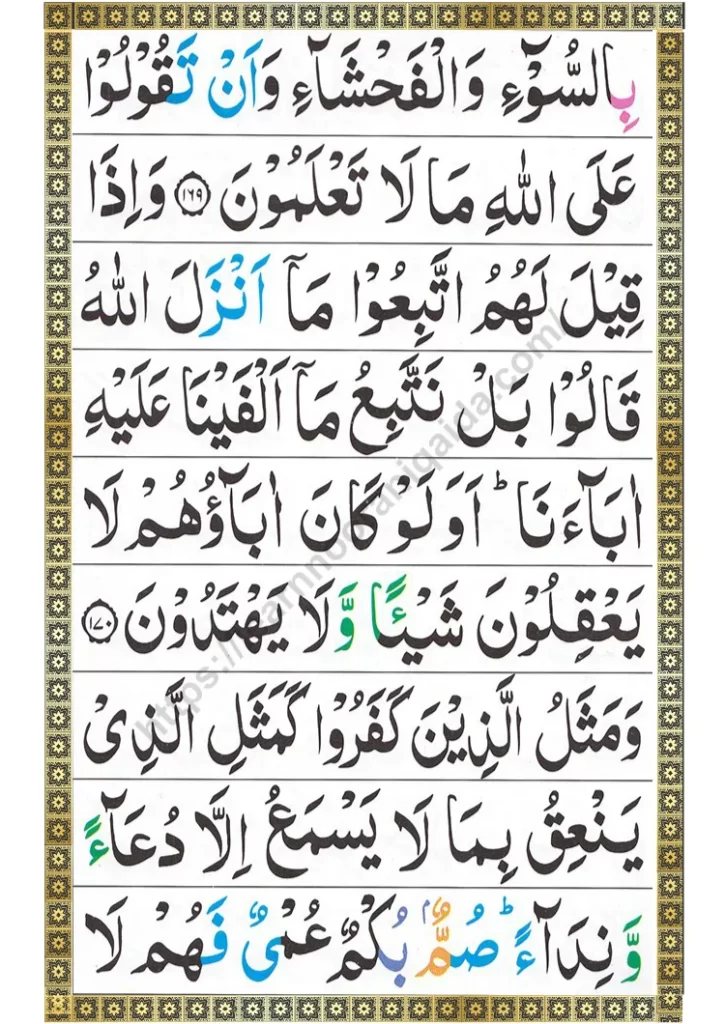 بِالسُّوْٓءِ وَالْفَحْشَآءِ وَاَنْ تَقُوْلُوْا
عَلَى اللّٰهِ مَا لَا تَعْلَمُوْنَ ۝١٦٩ وَاِذَا
قِيْلَ لَهُمُ اتَّبِعُوْا مَآ اَنْزَلَ اللّٰهُ
قَالُوْا بَلْ نَتَّبِعُ مَآ اَلْفَيْنَا عَلَيْهِ
اٰبَآءَنَا ؕ اَوَلَوْ كَانَ اٰبَآؤُهُمْ لَا
يَعْقِلُوْنَ شَيْـًٔا وَّلَا يَهْتَدُوْنَ ۝١٧٠
وَمَثَلُ الَّذِيْنَ كَفَرُوْا كَمَثَلِ الَّذِىْ
يَنْعِقُ بِمَا لَا يَسْمَعُ اِلَّا دُعَآءً
وَّنِدَآءً ؕ صُمٌّۢ بُكْمٌ عُمْىٌ فَهُمْ لَا
https://learnnooraniqaida.com/